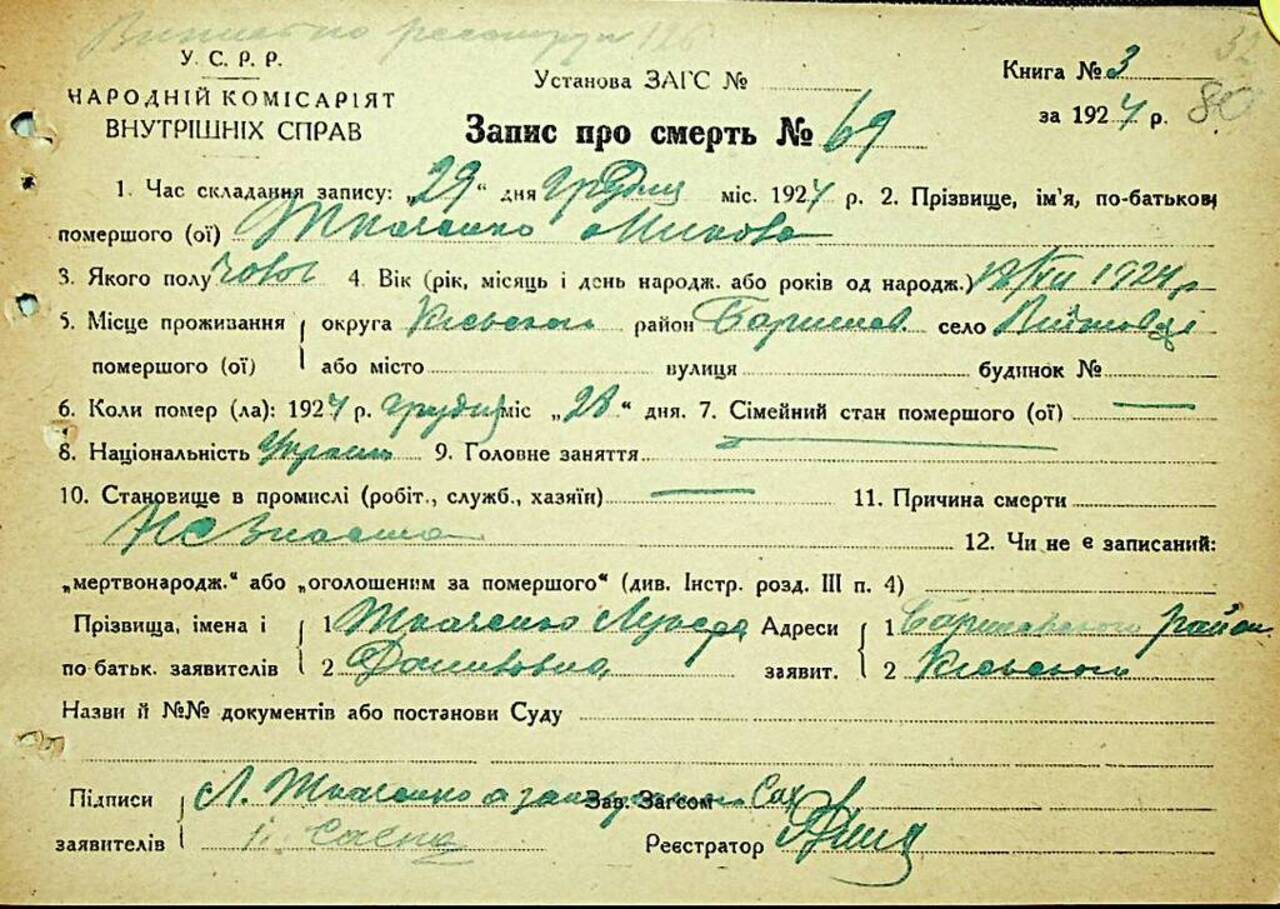 У. С. Р. Р.
НАРОДНІЙ КОМІСАРІЯТ
ВНУТРІШНІХ СПРАВ
Установа ЗАГС №
Книга № 3
за 1924 р. 80
32
Запис про смерть № 69
1. Час складання запису: „29“ дня грудня міс. 1924 р. 2. Прізвище, ім'я, по-батькові
помершого (ої) Ткаченко Микола
3. Якого полу чолов 4. Вік (рік, місяць і день народж. або років од народж.) 12/XII 1924 р
5. Місце проживання округа Київського район Баришев. село
помершого (ої) або місто вулиця будинок №
6. Коли помер (ла): 1924 р. грудня міс „28“ дня. 7. Сімейний стан помершого (ої) —
8. Національність Україн 9. Головне заняття —
10. Становище в промислі (робіт., служб., хазяїн) — 11. Причина смерти
12. Чи не є записаний:
„мертвонародж.“ або „оголошеним за помершого“ (див. Інстр. розд. III п. 4)
Прізвища, імена і 1 Ткаченко Адреси 1 район
по батьк. заявителів 2 заявит. 2 Київського
Назви й №№ документів або постанови Суду
Підписи Л. Ткаченко Зав. Загсом
заявителів Реєстратор